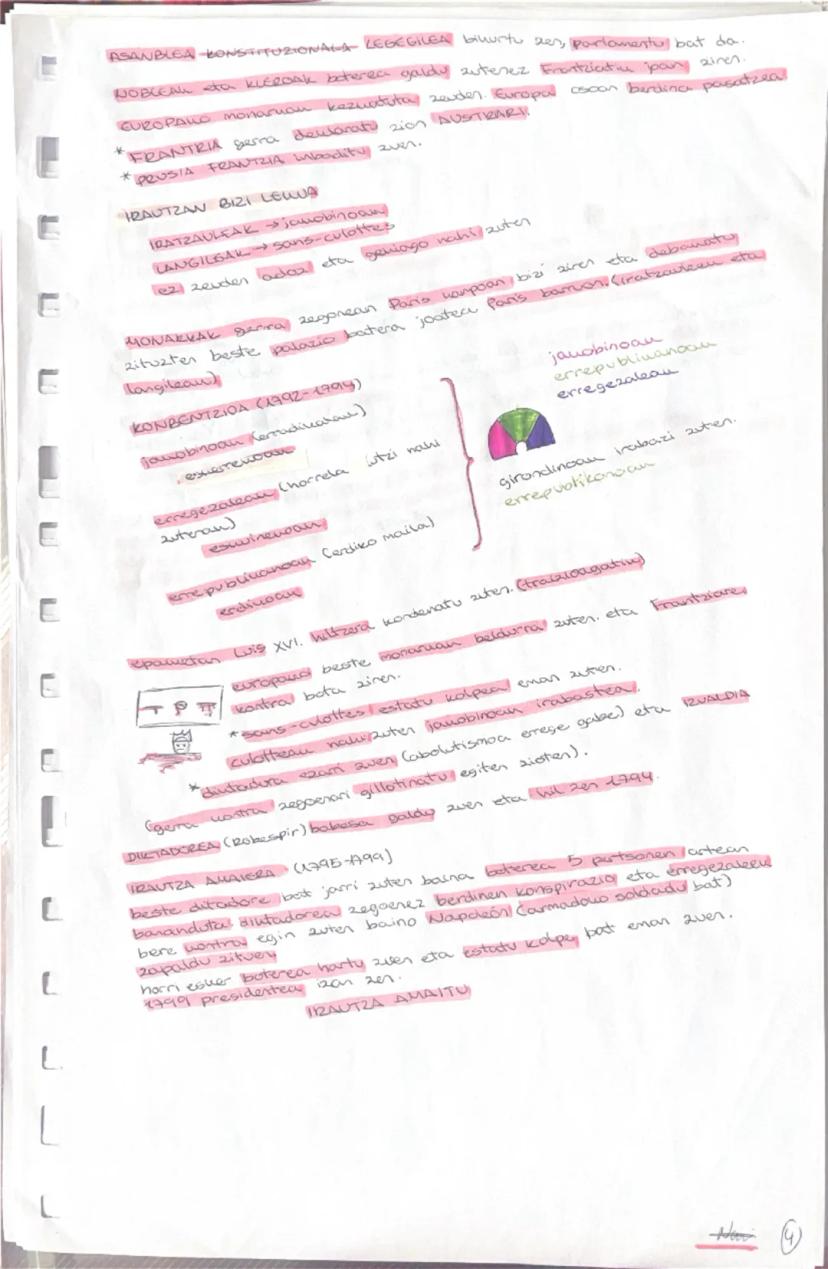 ASANBLEA KONSTITUZIONALA LEGEGILEA bihurtu zen, parlamentu bat da.
NOBLEAK eta KLEROAK boterea galdu zutenez Frantziatik joan ziren.
EUROPAKO monarkak kezkatuta zeuden. Europa osoan berdina pasatzea
*FRANTZIA gerra deklaratu zion AUSTRIARI.
*PRUSIA FRANTZIA inbaditu zuen.
IRAUTZAN BIZI LEKUA
IRATZAULEAK → jakobinoak
LANGILEAK → sans-culottes
ez zeuden ados eta gehiago nahi zuten
MONARKAK gerra zegonean Paris kanpoan bizi ziren eta
zituzten beste palazio batera joatea Paris barruan. (iratzauleak eta
langileak)
KONBENTZIOA (1792-1794)
jakobinoak (erradikalak)
eskerrekoak
erregezaleak (horrela utzi nahi
zutenak)
eskuinekoak
errepublikanoak (erdiko maila)
erdikoak
jakobinoak
errepublikanoak
erregezaleak
girondinoak irabazi zuten.
errepublikanoak
epaiketan Luis XVI. hiltzera kondenatu zuten. (traizioagatik)
europako beste monarkak beldurra zuten. eta Frantziaren
kontra bota ziren.
*sans-culottes estatu kolpea eman zuten.
culotteak nahi zuten jakobinoak irabastea.
*diktadura ezarri zuen (absolutismoa errege gabe) eta IZUALDIA
(gerra kontra zegoenari gillotinatu egiten zioten).
DIKTADOREA (Robespir) babesa galdu zuen eta hil zen 1794.
IRAUTZA AMAIERA (1795-1799)
beste diktadore bat jarri zuten baina boterea 5 pertsonen artean
bananduta diktadorea zegoenez berdinen konspirazio eta erregezaleek
bere kontra egin zuten baino Napoleón (armadako soldadu bat)
zapaldu zituen
horri esker boterea hartu zuen eta estatu kolpe bat eman zuen.
1799 presidentea izan zen.
IRAUTZA AMAITU
4